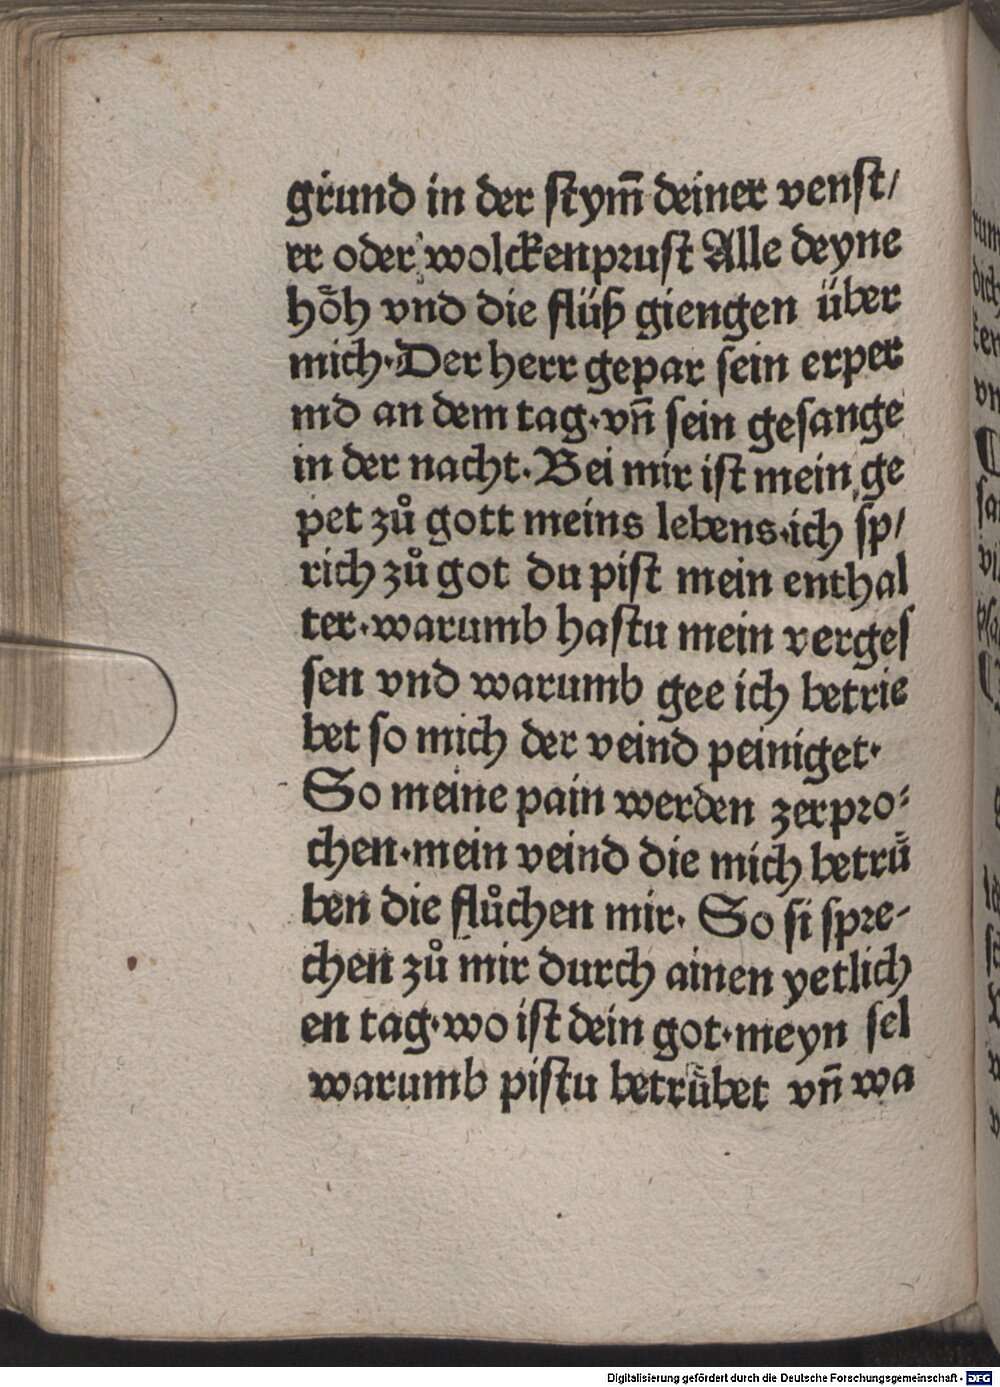 grund in der stym̄ deiner venst/
er oder wolckenprust Alle deyne
hoͤh vnd die flüß giengen über
mich·Der herr gepar sein erper
md an dem tag·vn̄ sein gesange
in der nacht·Bei mir ist mein ge
pet zů gott meins lebens·ich sp/
rich zů got du pist mein enthal
ter·warumb hastu mein verges
sen vnd warumb gee ich betrie
bet so mich der veind peiniget·
So meine pain werden zerpro⸗
chen·mein veind die mich betruͤ
ben die flůchen mir· So si spre-
chen zů mir durch ainen yetlich
en tag·wo ist dein got·meyn sel
warumb pistu betruͤbet vn̄ wa
Digitalisierung gefördert durch die Deutsche Forschungsgemeinschaft - DFG